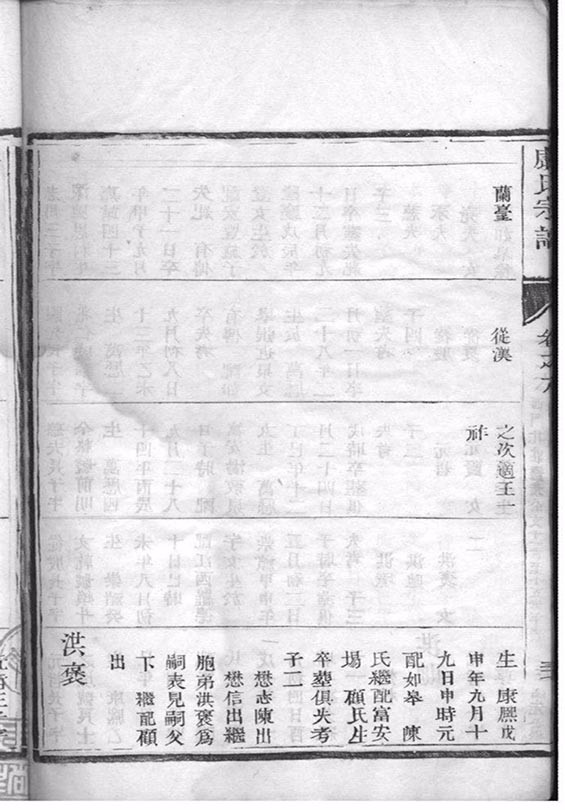 氏宗譜
卷之
蘭臺
從漢
之次適王士
生 康熙戊
申年九月十
九日申時元
配如皋 陳
氏繼配富安
場 顧氏生
卒塟俱失考
子二
懋志陳出
懋信出繼
胞弟洪褒爲
嗣表見嗣父
下 繼配顧
出
洪褒